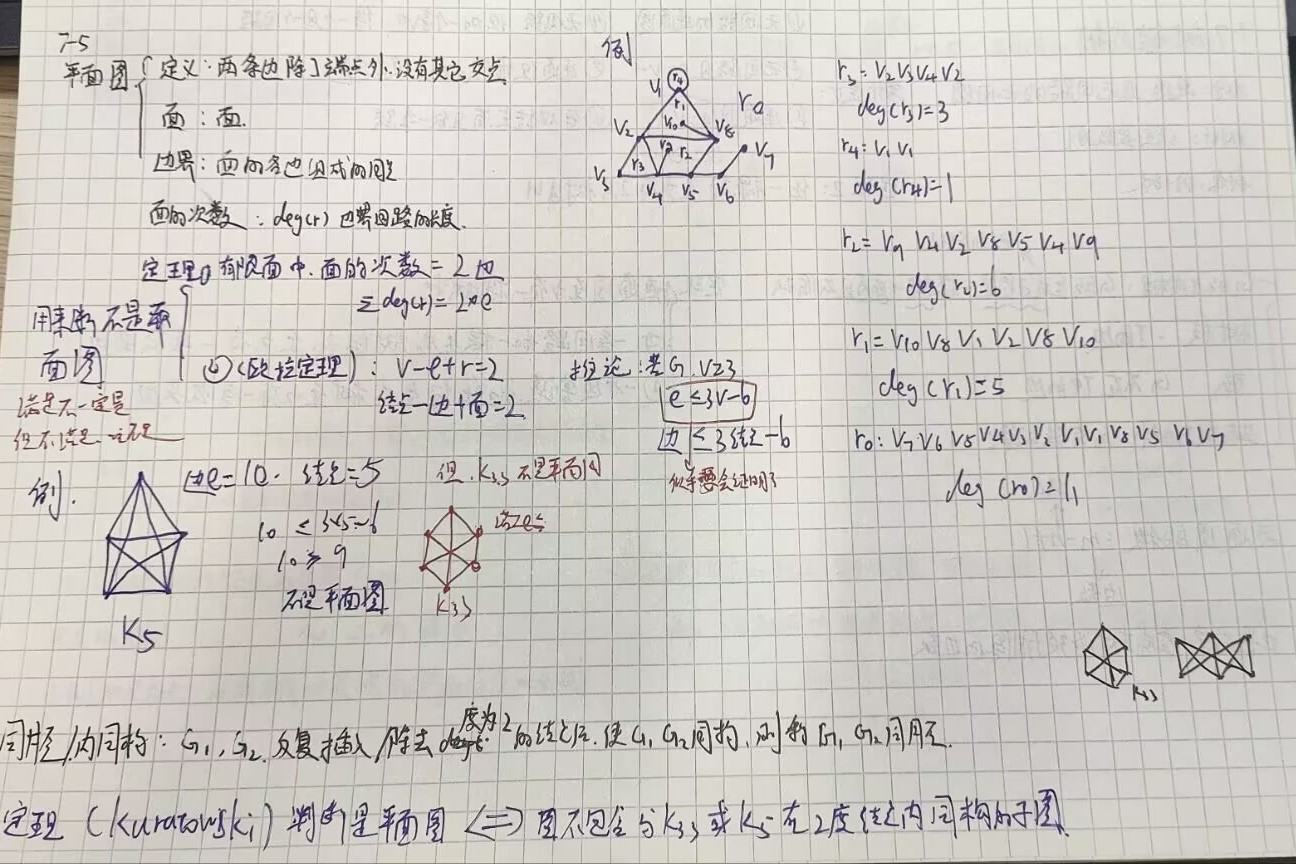 7-5
平面图
定义：两条边除了端点外.没有其它交点
面：面.
边界：面的各边组成的回路
面的次数：deg(r) 边界回路的长度.
定理① 有限面中.面的次数=2边
Σdeg(r)=2*e
用来断不是平
面图
满足不一定是
但不满足一定不是
②<欧拉定理>：V-e+r=2
结点-边+面=2
推论：若G.V≥3
e≤3V-6
边≤3结点-6
例.
边e=10. 结点=5
10≤3×5-6
10≥9
不是平面图
K5
但.K33不是平面图
满足
K33
例
V1
r4
r1
V10
r0
V2
V8
V9
r2
r3
V7
V3
V4
V5
V6
r3=V2V3V4V2
deg(r3)=3
r4:V1V1
deg(r4)=1
r2=V9 V4 V2 V8 V5 V4 V9
deg(r2)=6
r1=V10 V8 V1 V2 V8 V10
deg(r1)=5
r0:V7V6 V5V4V3V2 V1V1V8V5 V6V7
deg(r0)=11
K33
同胚/内同构：G1,G2.反复插入/除去度为2的结点后.使G1 G2同构,则称G1,G2同胚.
定理(kuratowski)判断是平面图<=>图不包含与K33或K5在2度结点内同构的子图.